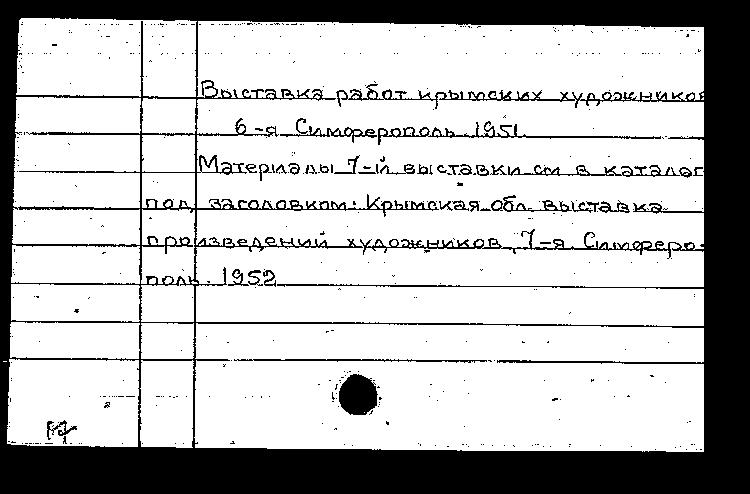 Выставка работ крымских художников
6-я Симферополь. 1951.
Материалы 7-й выставки см в каталог
под заголовком: Крымская обл. выставка
произведений художников, 7-я. Симферо-
поль. 1952